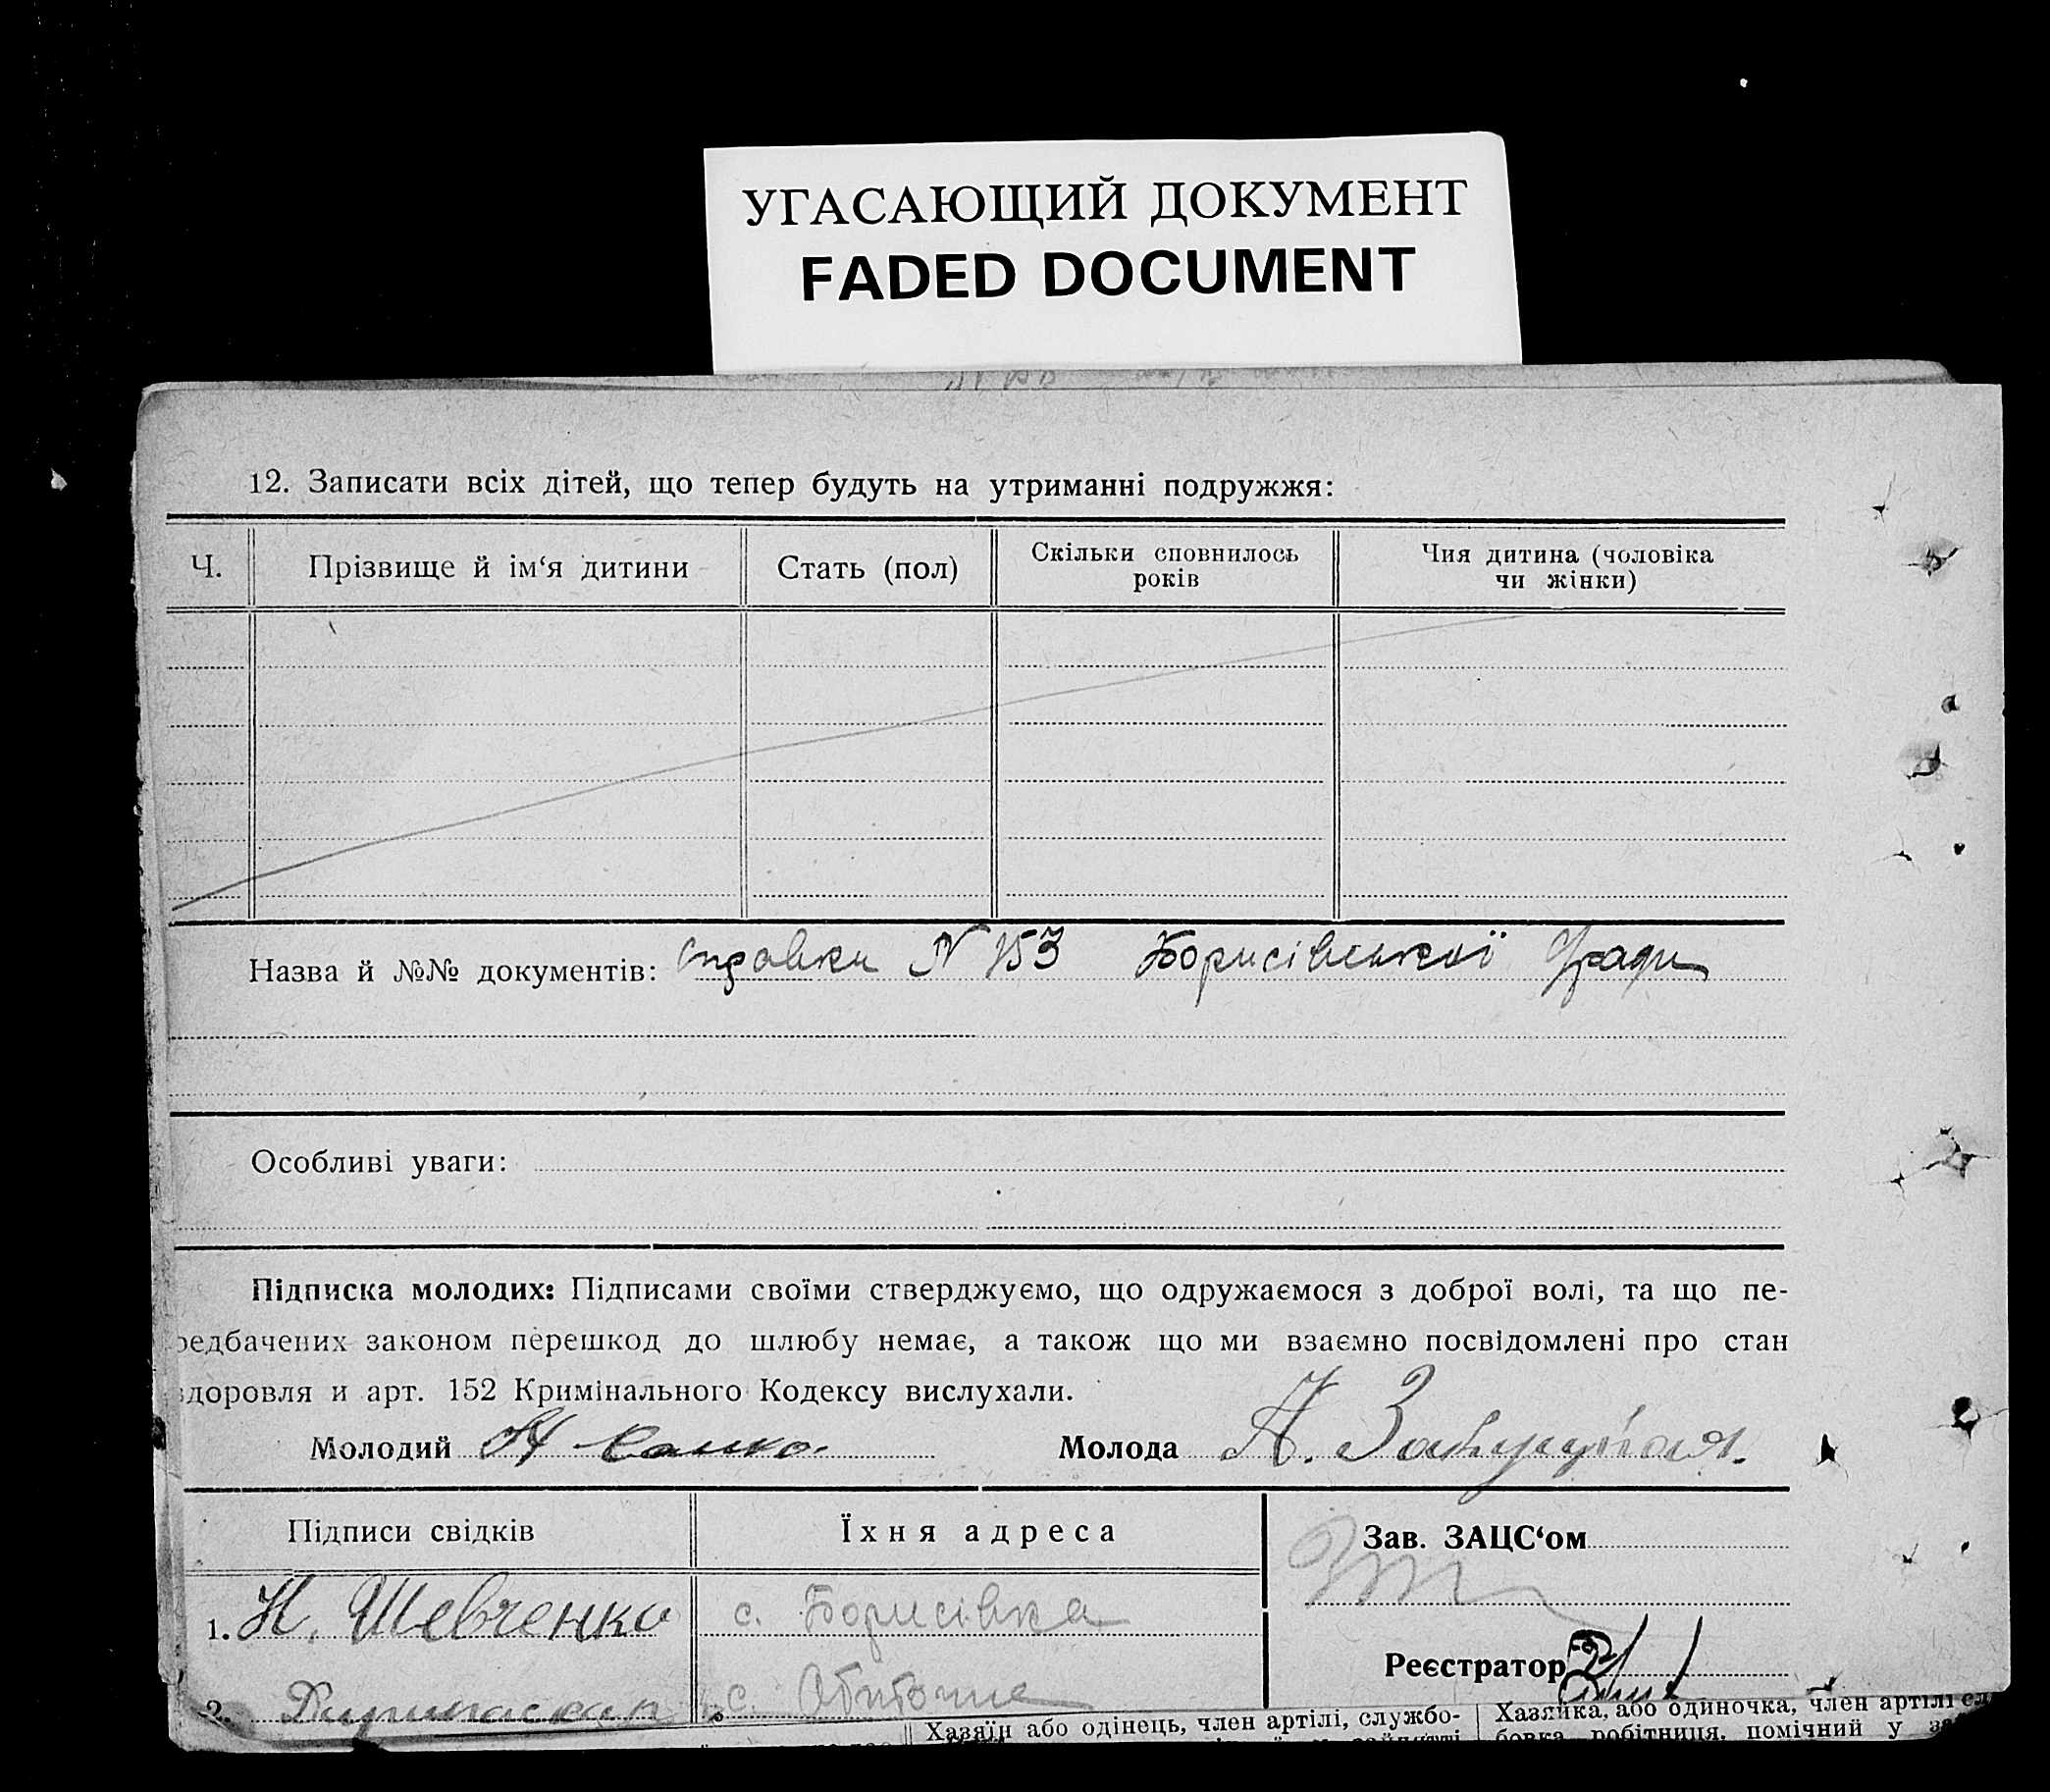 УГАСАЮЩИЙ ДОКУМЕНТ
FADED DOCUMENT
12. Записати всіх дітей, що тепер будуть на утриманні подружжя:
Ч. Прізвище й ім‘я дитини Стать (пол) Скільки сповнилось років Чия дитина (чоловіка чи жінки)
Назва й №№ документів: справки N 153 Борисівської
Особливі уваги:
Підписка молодих: Підписами своїми стверджуємо, що одружаємося з доброї волі, та що пе-
редбачених законом перешкод до шлюбу немає, а також що ми взаємно посвідомлені про стан
здоровля и арт. 152 Кримінального Кодексу вислухали.
Молодий Молода А.
Підписи свідків Їхня адреса Зав. ЗАЦС‘ом
1. Н. Шевченко с. Борисівка
Реєстратор
2. с. Обиточне
Хазяїн або одінець, член артілі, службо- Хазяйка, або одиночка, член артілі
бовка робітниця, помічний у